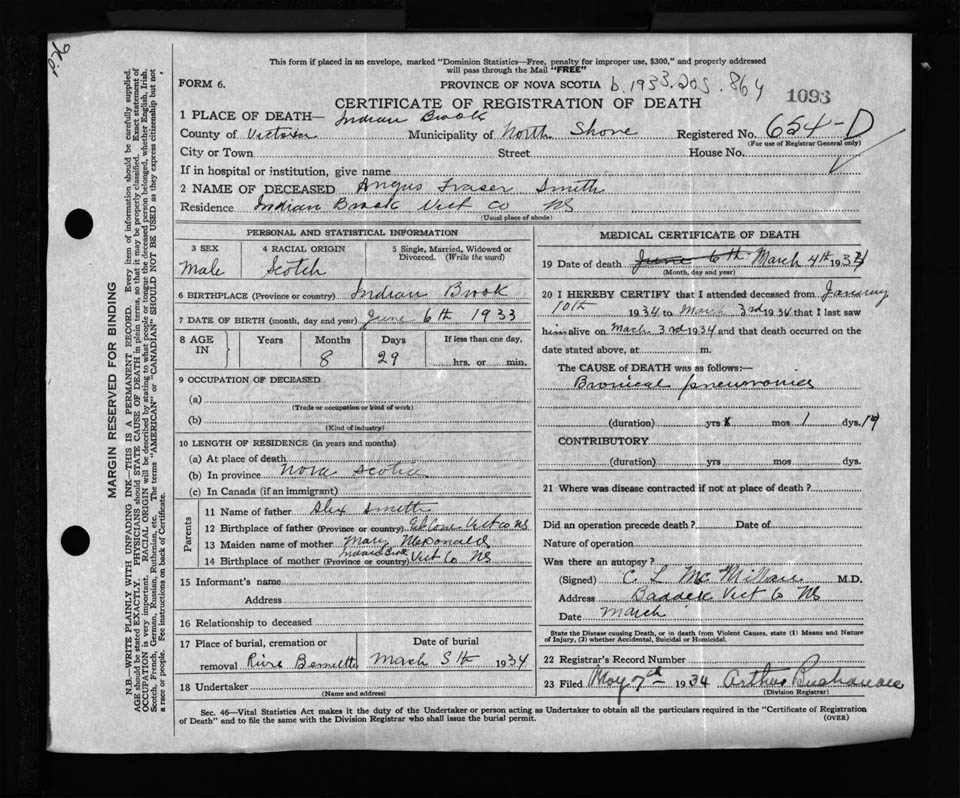 P. 26
This form if placed in an envelope, marked "Dominion Statistics—Free, penalty for improper use, $300," and properly addressed
will pass through the Mail "FREE"
FORM 6.
PROVINCE OF NOVA SCOTIA b. 1933.205.864
1093
CERTIFICATE OF REGISTRATION OF DEATH
1 PLACE OF DEATH— Indian Brook
County of Victoria Municipality of North Shore Registered No. 654-D
(For use of Registrar General only)
City or Town Street House No.
If in hospital or institution, give name
2 NAME OF DECEASED Angus Fraser Smith
Residence Indian Brook Vict Co NS
(Usual place of abode)
PERSONAL AND STATISTICAL INFORMATION
3 SEX 4 RACIAL ORIGIN 5 Single, Married, Widowed or
Divorced. (Write the word)
Male Scotch
6 BIRTHPLACE (Province or country) Indian Brook
7 DATE OF BIRTH (month, day and year) June 6th 1933
8 AGE IN Years Months Days If less than one day,
8 29 hrs. or min.
9 OCCUPATION OF DECEASED
(a)
(Trade or occupation or kind of work)
(b)
(Kind of industry)
10 LENGTH OF RESIDENCE (in years and months)
(a) At place of death
(b) In province Nova Scotia
(c) In Canada (if an immigrant)
Parents
11 Name of father Alex Smith
12 Birthplace of father (Province or country) Vict co NS
13 Maiden name of mother Mary McDonald
14 Birthplace of mother (Province or country) Indian Brook Vict Co NS
15 Informant's name
Address
16 Relationship to deceased
17 Place of burial, cremation or Date of burial
removal March 5th 1934
18 Undertaker
(Name and address)
MEDICAL CERTIFICATE OF DEATH
19 Date of death June 6th March 4th 1934
(Month, day and year)
20 I HEREBY CERTIFY that I attended deceased from January
10th 1934 to March 3rd 1934 that I last saw
him alive on March 3rd 1934 and that death occurred on the
date stated above, at m.
The CAUSE OF DEATH was as follows:—
Bronical pneumonia
(duration) yrs x mos 1 dys. 19
CONTRIBUTORY
(duration) yrs mos dys.
21 Where was disease contracted if not at place of death?
Did an operation precede death? Date of
Nature of operation
Was there an autopsy?
(Signed) C L McMillan M.D.
Address Baddeck Vict Co NS
Date March
State the Disease causing Death, or in death from Violent Causes, state (1) Means and Nature
of Injury, (2) whether Accidental, Suicidal or Homicidal.
22 Registrar's Record Number
23 Filed May 7th 1934 Arthur
(Division Registrar)
Sec. 46—Vital Statistics Act makes it the duty of the Undertaker or person acting as Undertaker to obtain all the particulars required in the "Certificate of Registration
of Death" and to file the same with the Division Registrar who shall issue the burial permit. (OVER)
MARGIN RESERVED FOR BINDING
N.B.—WRITE PLAINLY WITH UNFADING INK—THIS IS A PERMANENT RECORD. Every item of information should be carefully supplied.
AGE should be stated EXACTLY. PHYSICIANS should STATE CAUSE OF DEATH in plain terms, so that it may be properly classified. Exact statement of
OCCUPATION is very important. RACIAL ORIGIN will be described by stating to what people or tongue the deceased person belonged, whether English, Irish,
Scotch, French, German, Russian, Ruthenian, etc. The terms "AMERICAN" or "CANADIAN" SHOULD NOT BE USED as they express citizenship but not
a race or people. See instructions on back of Certificate.